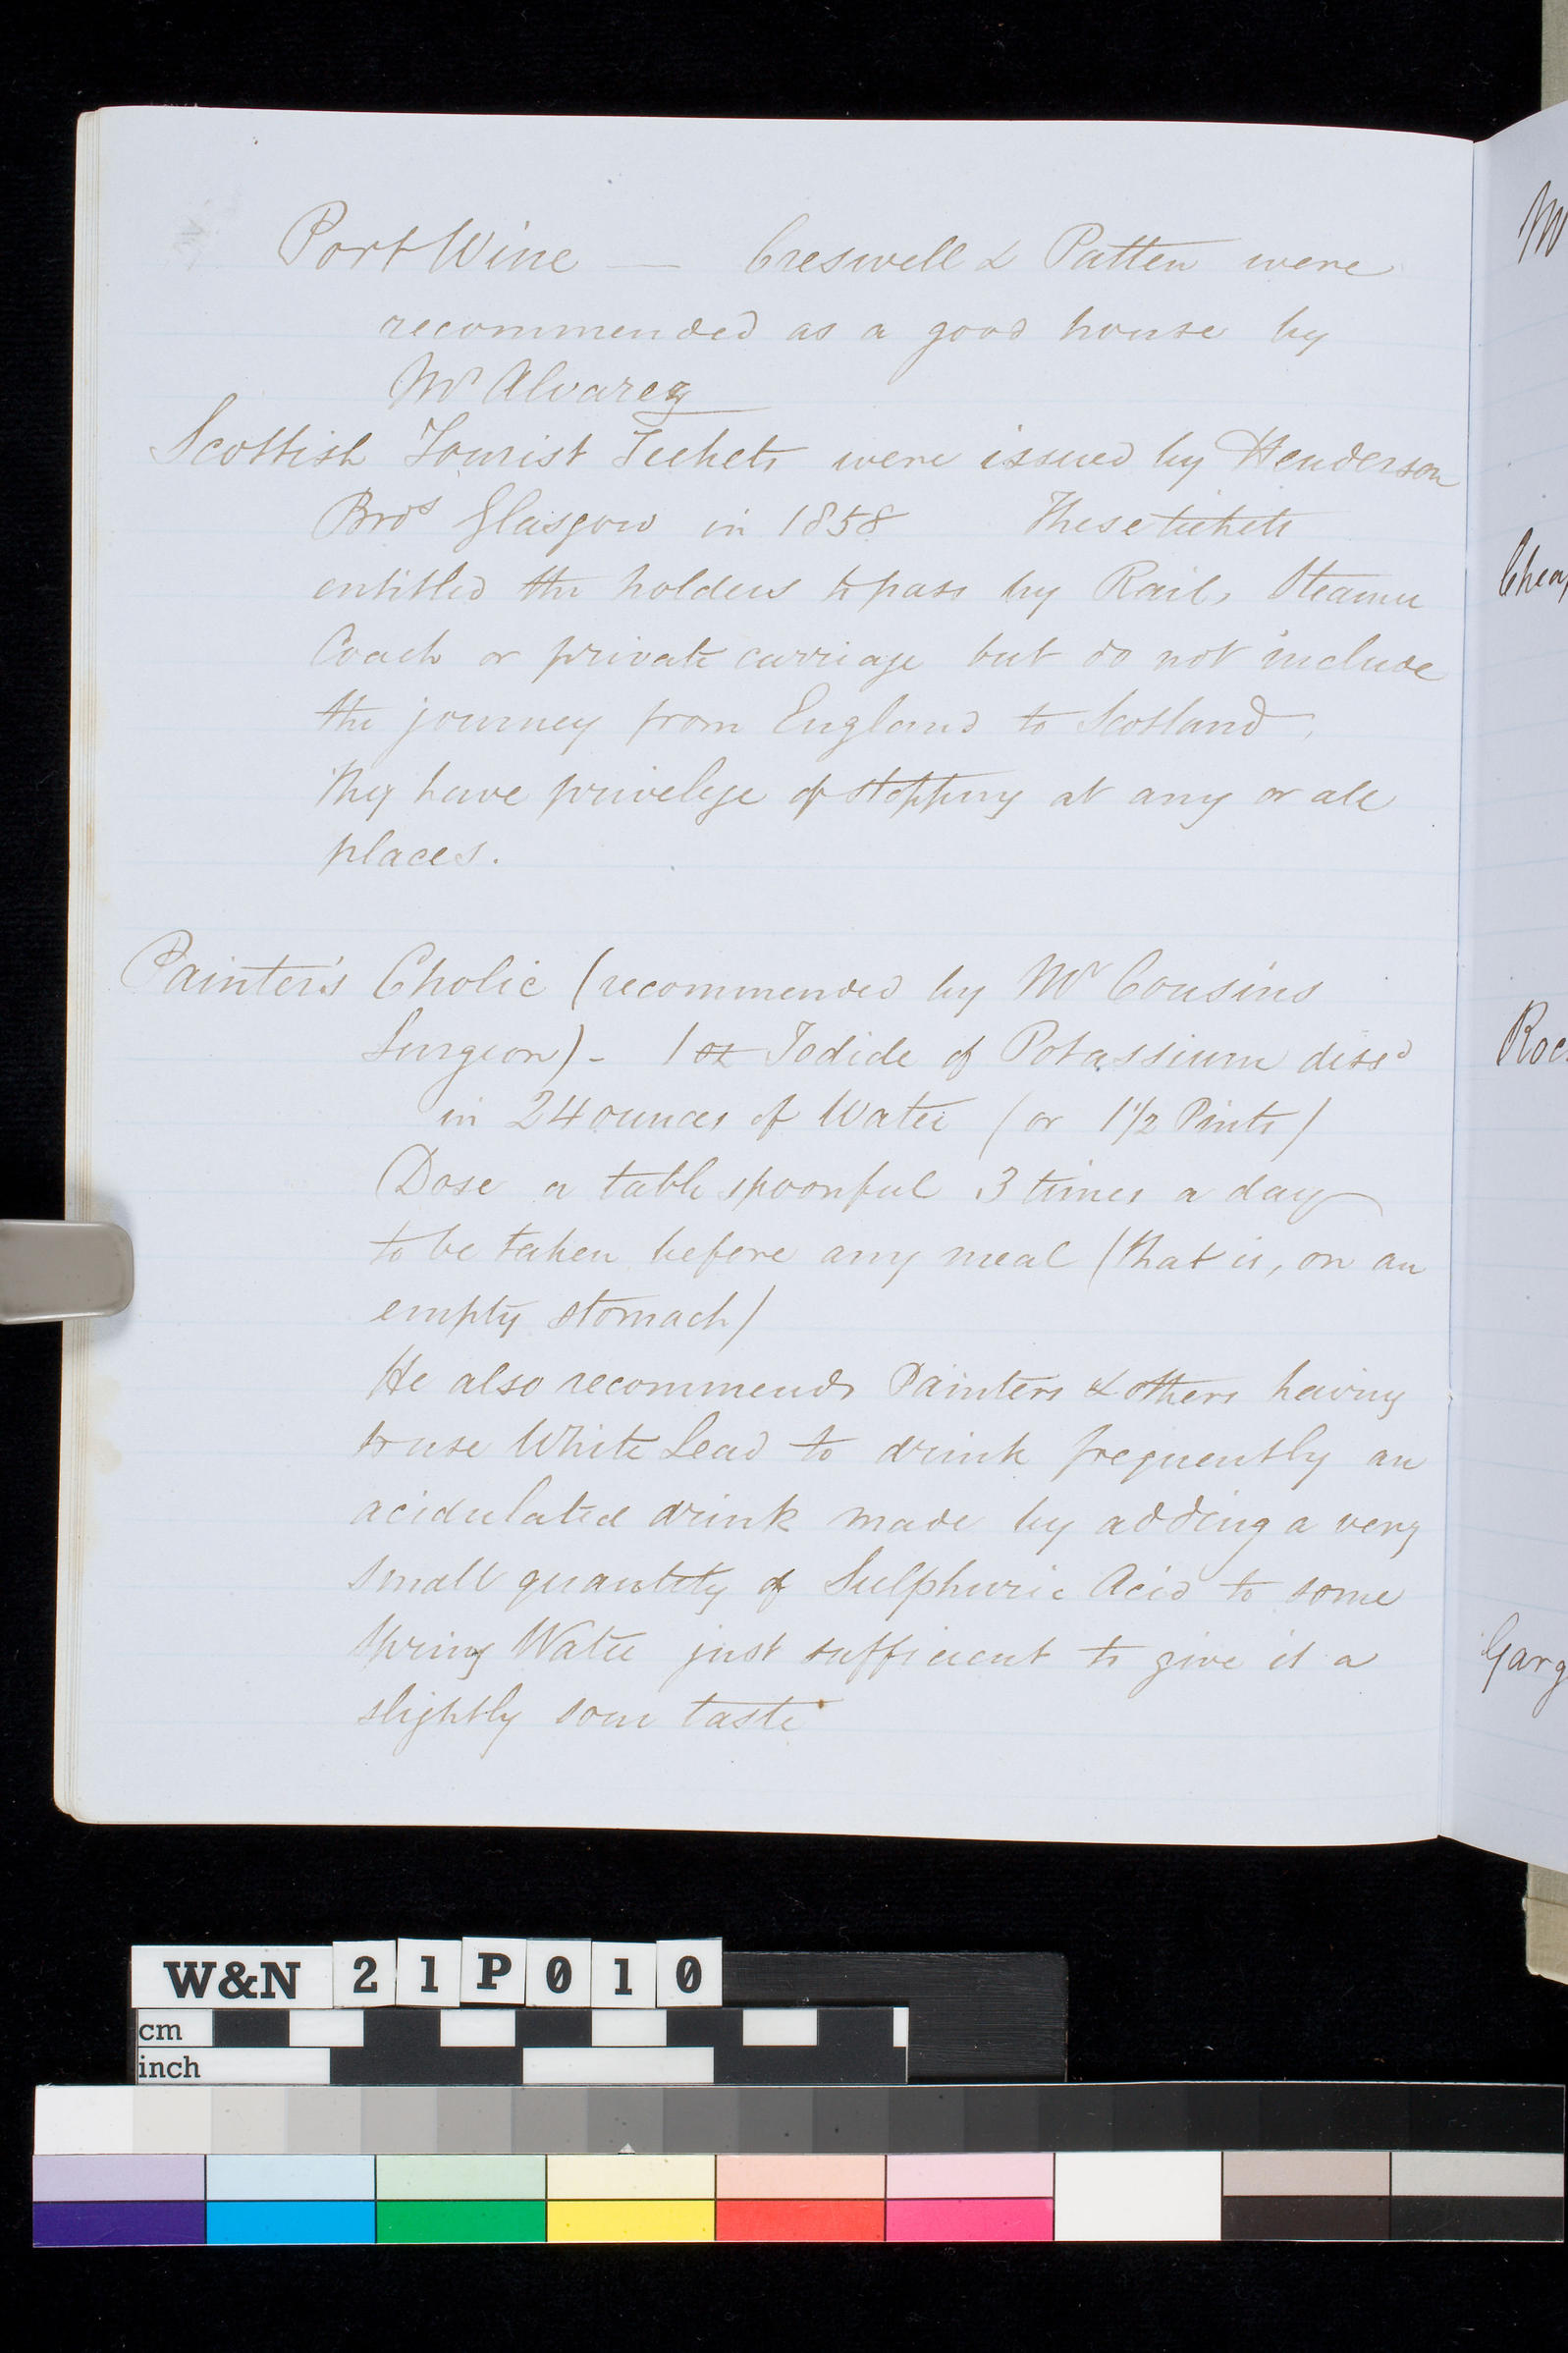 Port Wine — Creswell & Patten were
recommended as a good house by
Mr Alvarez
Scottish Tourist Tickets were issued by Henderson
Bros Glasgow in 1858 These tickets
entitled the holders to pass by Rail, Steamer
Coach or private carriage but do not include
the journey from England to Scotland,
They have privelege of stopping at any or all
places.
Painter's Cholic (recommended by Mr Cousins
Surgeon) - 1 oz Iodide of Potassium dissd
in 24 ounces of Water (or 1 1/2 Pints)
Dose a table spoonful 3 times a day
to be taken before any meal (that is, on an
empty stomach)
He also recommends Painters & others having
to use White Lead to drink frequently an
acidulated drink made by adding a very
small quantity of Sulphuric Acid to some
Spring Water just sufficient to give it a
slightly sour taste
M
Chea
Roc
Garg
W&N 21P010
cm
inch